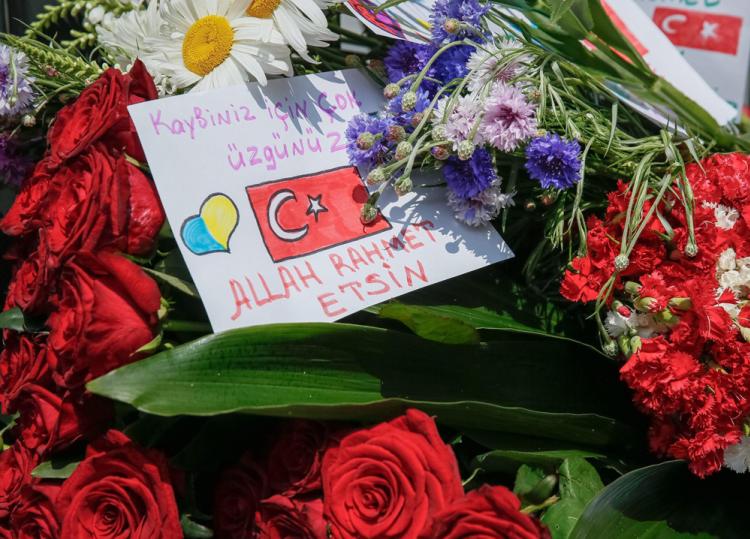 Kaybiniz için çok
üzgünüz
ALLAH RAHMET
ETSİN